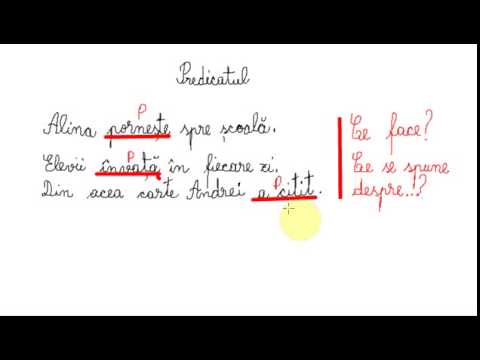 Predicatul
P
Alina pornește spre școală.
Ce face?
P
Elevii învață în fiecare zi.
Ce se spune
P
Din acea carte Andrei a citit.
despre...?